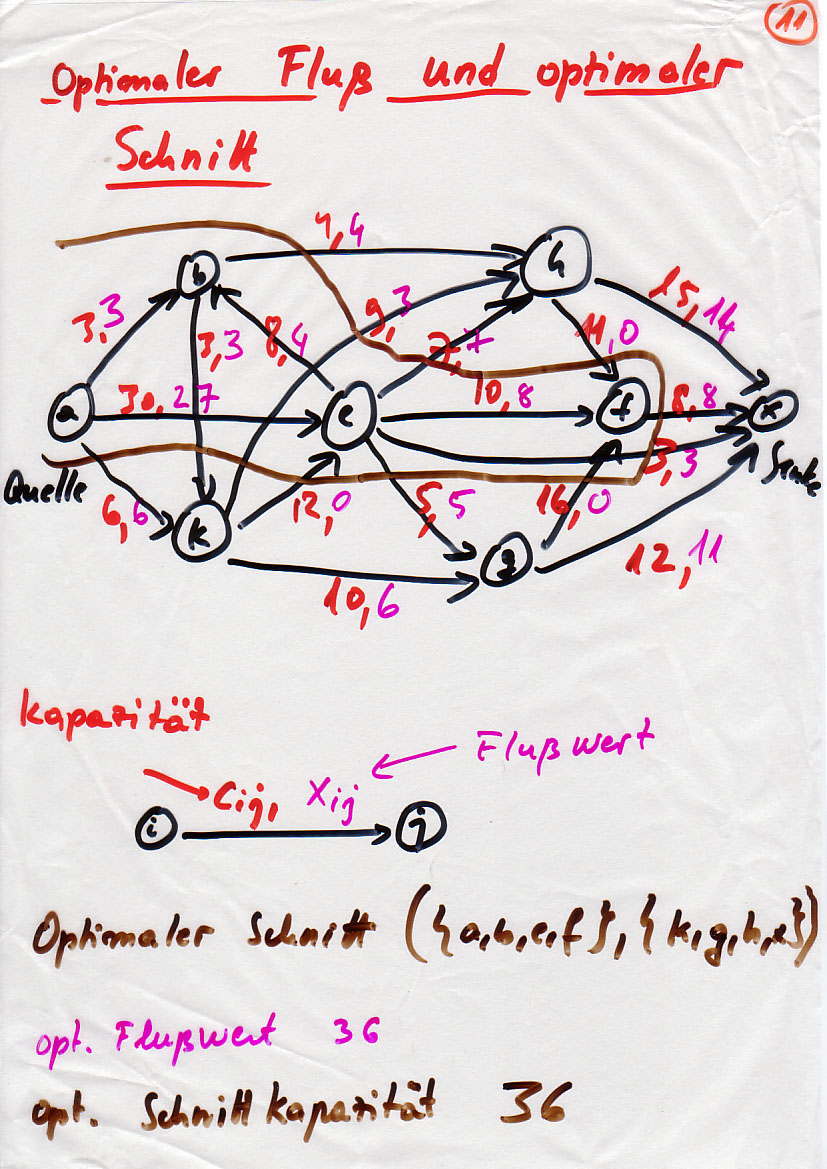 11
Optimaler Fluß und optimaler
Schnitt
4,4
h
b
15,14
9,3
3,3
3,3
8,4
7,7
11,0
10,8
a
30,27
e
f
8,8
x
Quelle
3,3
Senke
6,6
12,0
5,5
16,0
k
g
12,11
10,6
Kapazität
Flußwert
cij, xij
i
j
Optimaler Schnitt ({a,b,e,f},{k,g,h,x})
opt. Flußwert 36
opt. Schnittkapazität 36